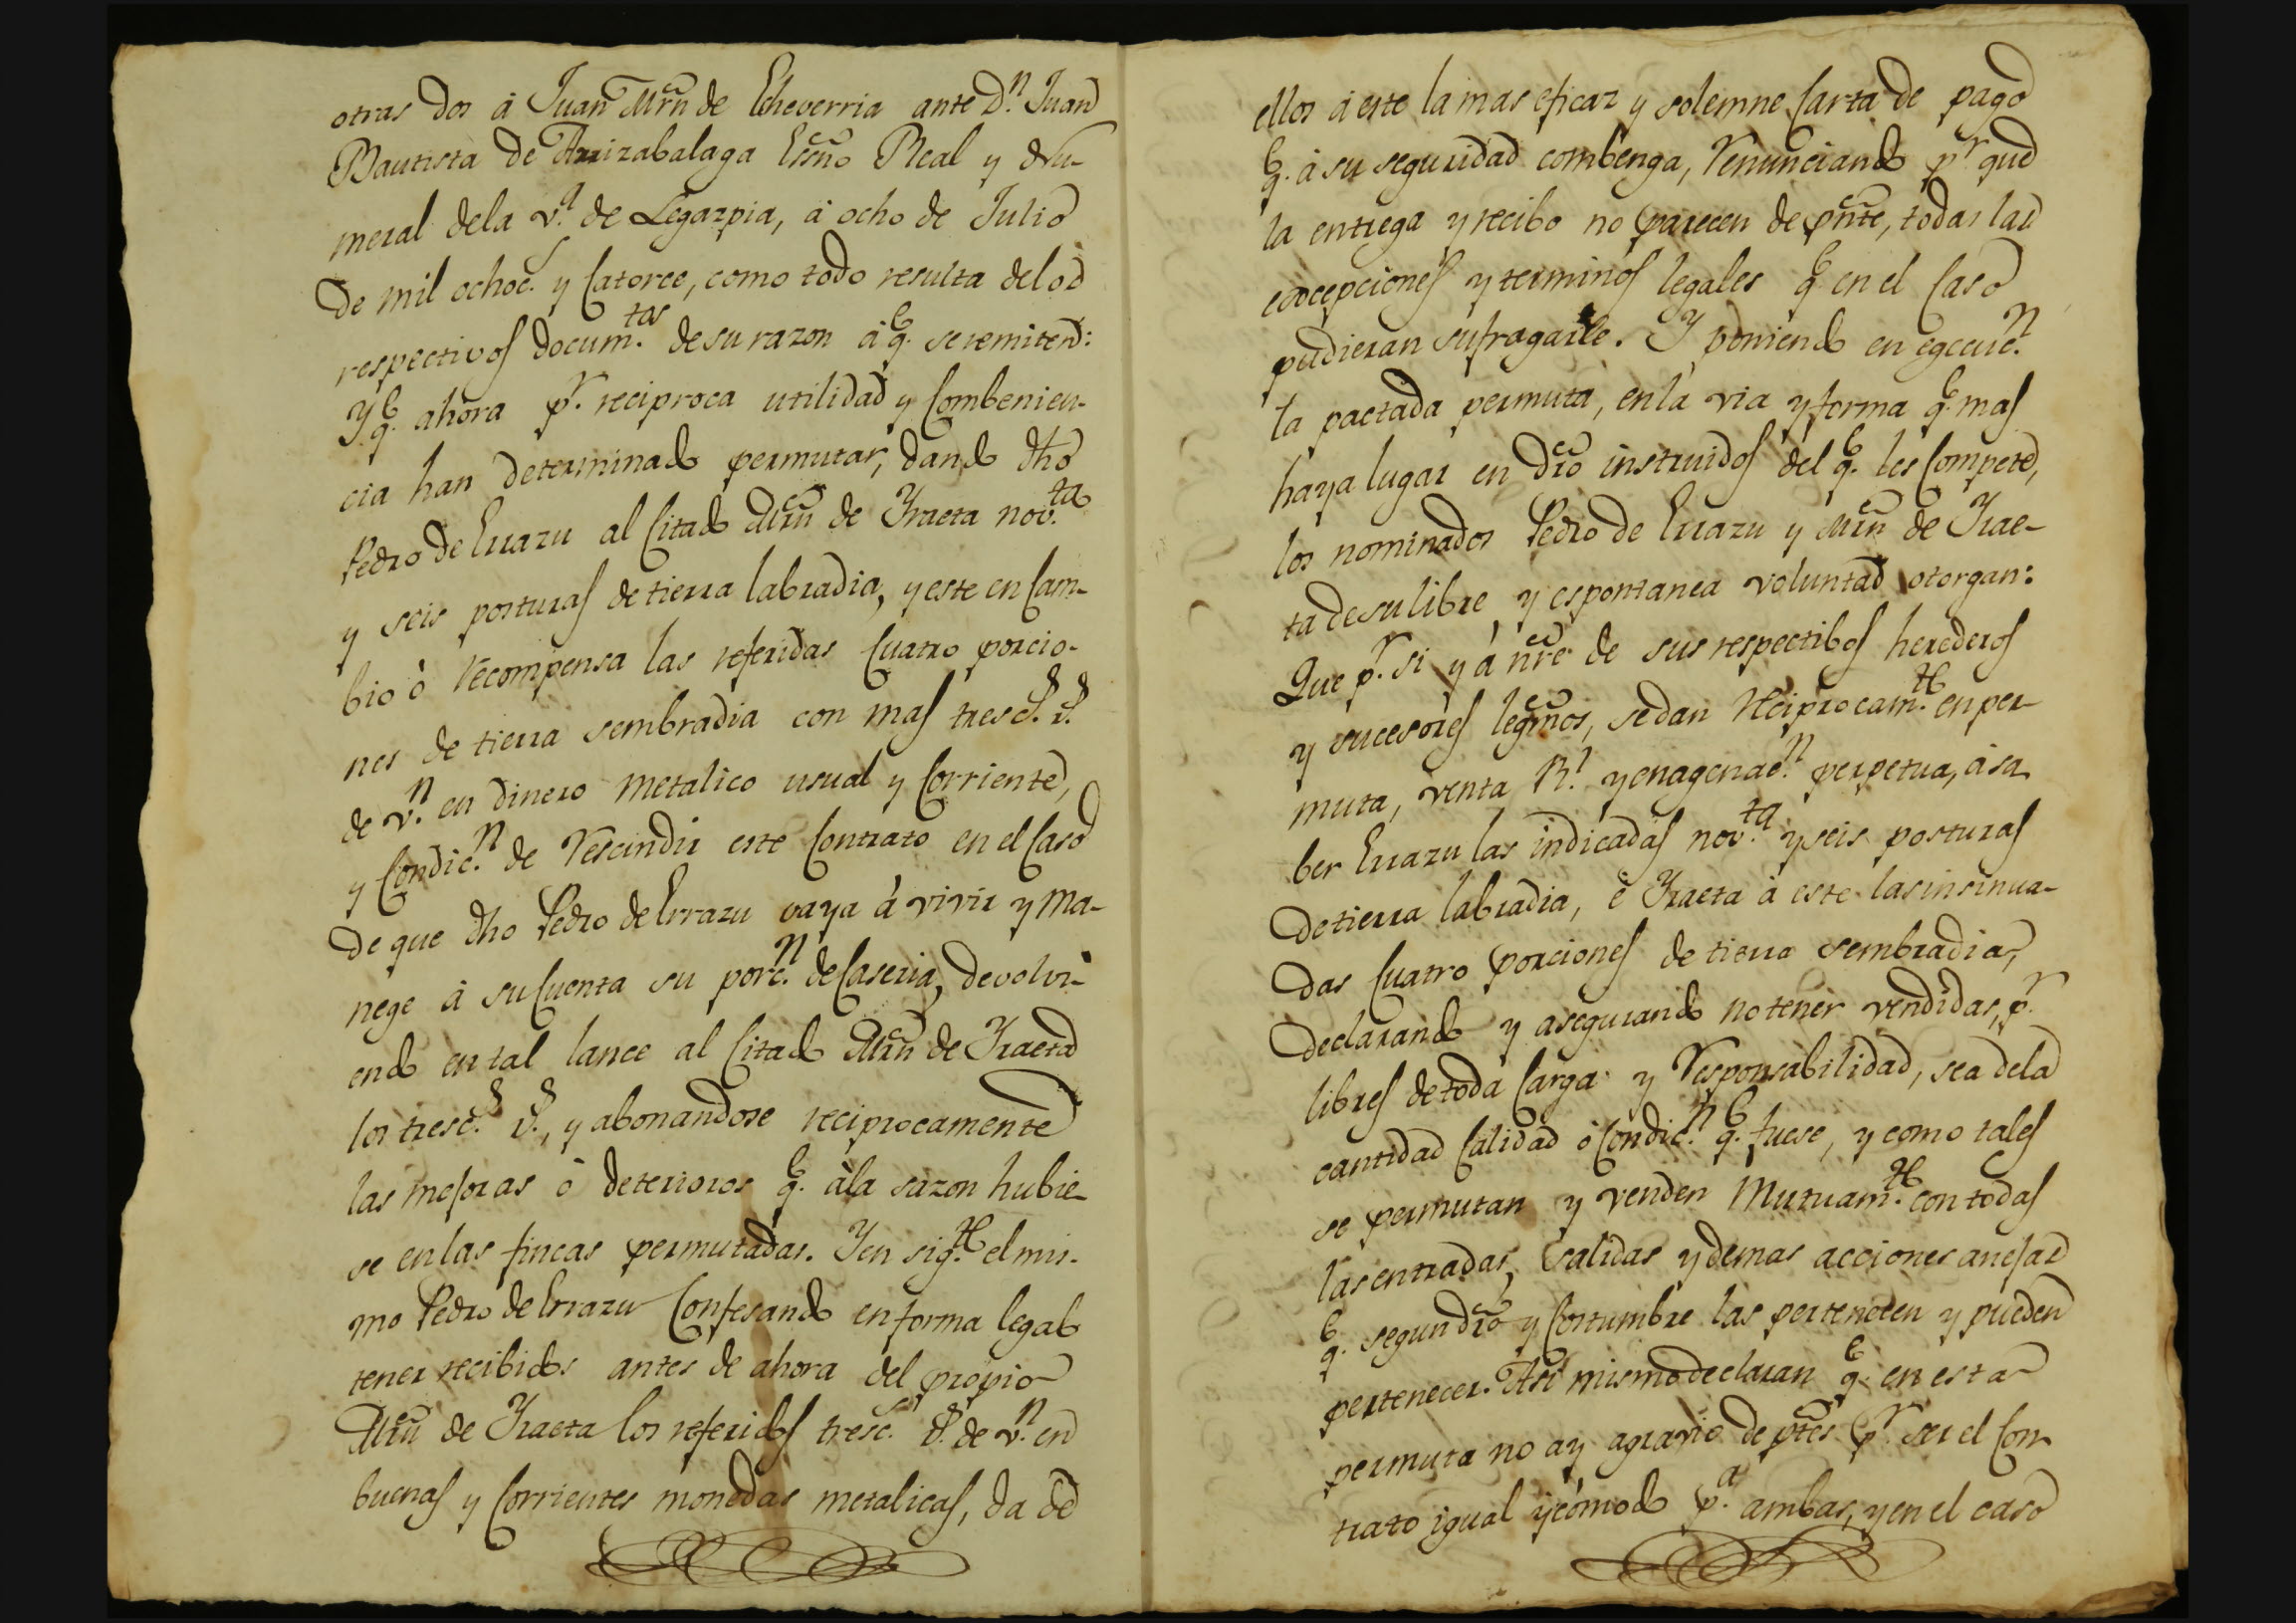 otras dos à Juan Mrñ de Echeverria ante Dⁿ. Juan
Bautista de Arrizabalaga Essño Real y Nu-
meral dela vª. de Legazpia, à ocho de Julio
de mil ochocˢ. y Catorce, como todo resulta delos
respectivos documᵗᵒˢ. desu razon à qᵉ. se remiten:
Y qᵉ. ahora pʳ. reciproca utilidad y Combenien-
cia han determinado permutar, dando dho
Pedro de Errazu al Citado Mrñ de Yraeta novᵗᵃ.
y seis posturas de tierra labradia, y este en Cam-
bio ò recompensa las referidas Cuatro porcio-
nes de tierra sembradia con mas trescˢ. rˢ.
de vⁿ. en dinero metalico usual y Corriente,
y Condicⁿ. de rescindir este Contrato en el Caso
de que dho Pedro de Errazu vaya à vivir y ma-
nege à su Cuenta su porcⁿ. de Caseria, devolvi-
endo en tal lance al Citado Mrñ de Yraeta
los trescˢ. rˢ., y abonandose reciprocamente
las mejoras ò deterioros qᵉ. àla sazon hubie-
se en las fincas permutadas. Y en sigᵗᵉ. el mis-
mo Pedro de Errazu Confesando en forma legal
tener recibidos antes de ahora del propio
Mrñ de Yraeta los referidos trescˢ. rˢ. de vⁿ. en
buenas y Corrientes monedas metalicas, da de
ellos à este la mas eficaz y solemne Carta de pago
qᵉ. à su seguridad combenga, renunciando pʳ. que
la entrega y recibo no parecen de pñte, todas las
excepciones y terminos legales qᵉ. en el Caso
pudieran sufragarle. Y poniendo en egecucⁿ.
la pactada permuta, en la via y forma qᵉ. mas
haya lugar en dr̃o instruidos del qᵉ. les Compete,
los nominados Pedro de Errazu y Mrñ de Yrae-
ta de su libre y espontanea voluntad otorgan:
Que pʳ. si y à nr̃e de sus respectibos herederos
y sucesores legmõs, se dan reciprocamᵗᵉ. en per-
muta, venta Rˡ. y enagenacⁿ. perpetua, à sa
ber Errazu las indicadas novᵗᵃ. y seis posturas
de tierra labradia, è Yraeta à este las insinua-
das Cuatro porciones de tierra sembradia,
declarando y asegurando no tener vendidas, pʳ.
libres de toda Carga y responsabilidad, sea dela
cantidad Calidad ò Condicⁿ. qᵉ. fuese, y como tales
se permutan y venden mutuamᵗᵉ. con todas
las entradas, salidas y demas acciones anejas
qᵉ. segun dr̃o y Costumbre las pertenecen y pueden
pertenecer. Asi mismo declaran qᵉ. en esta
permuta no ay agravio de ptẽs pʳ. ser el Con
trato igual y còmodo pª. ambas, y en el caso